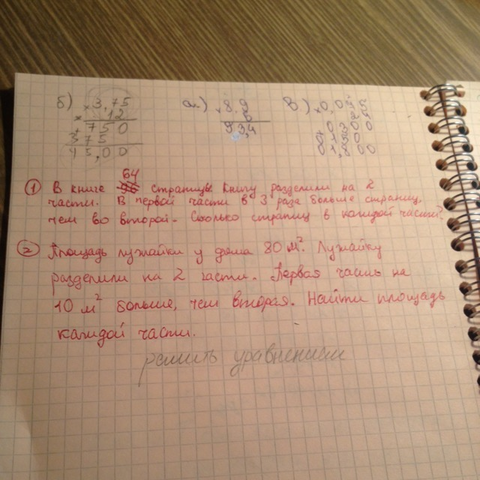 б) × 3,75
12
+ 750
375
45,00
а) × 8.9
6
53,4
в) × 0,0
64
① В книге страницы книгу разделили на 2
части. В первой части в 3 раза больше страниц,
чем во второй. Сколько страниц в каждой части?
② Площадь лужайки у дома 80 м². Лужайку
разделили на 2 части. Первая часть на
10 м² больше, чем вторая. Найти площадь
каждой части.
решить уравнением